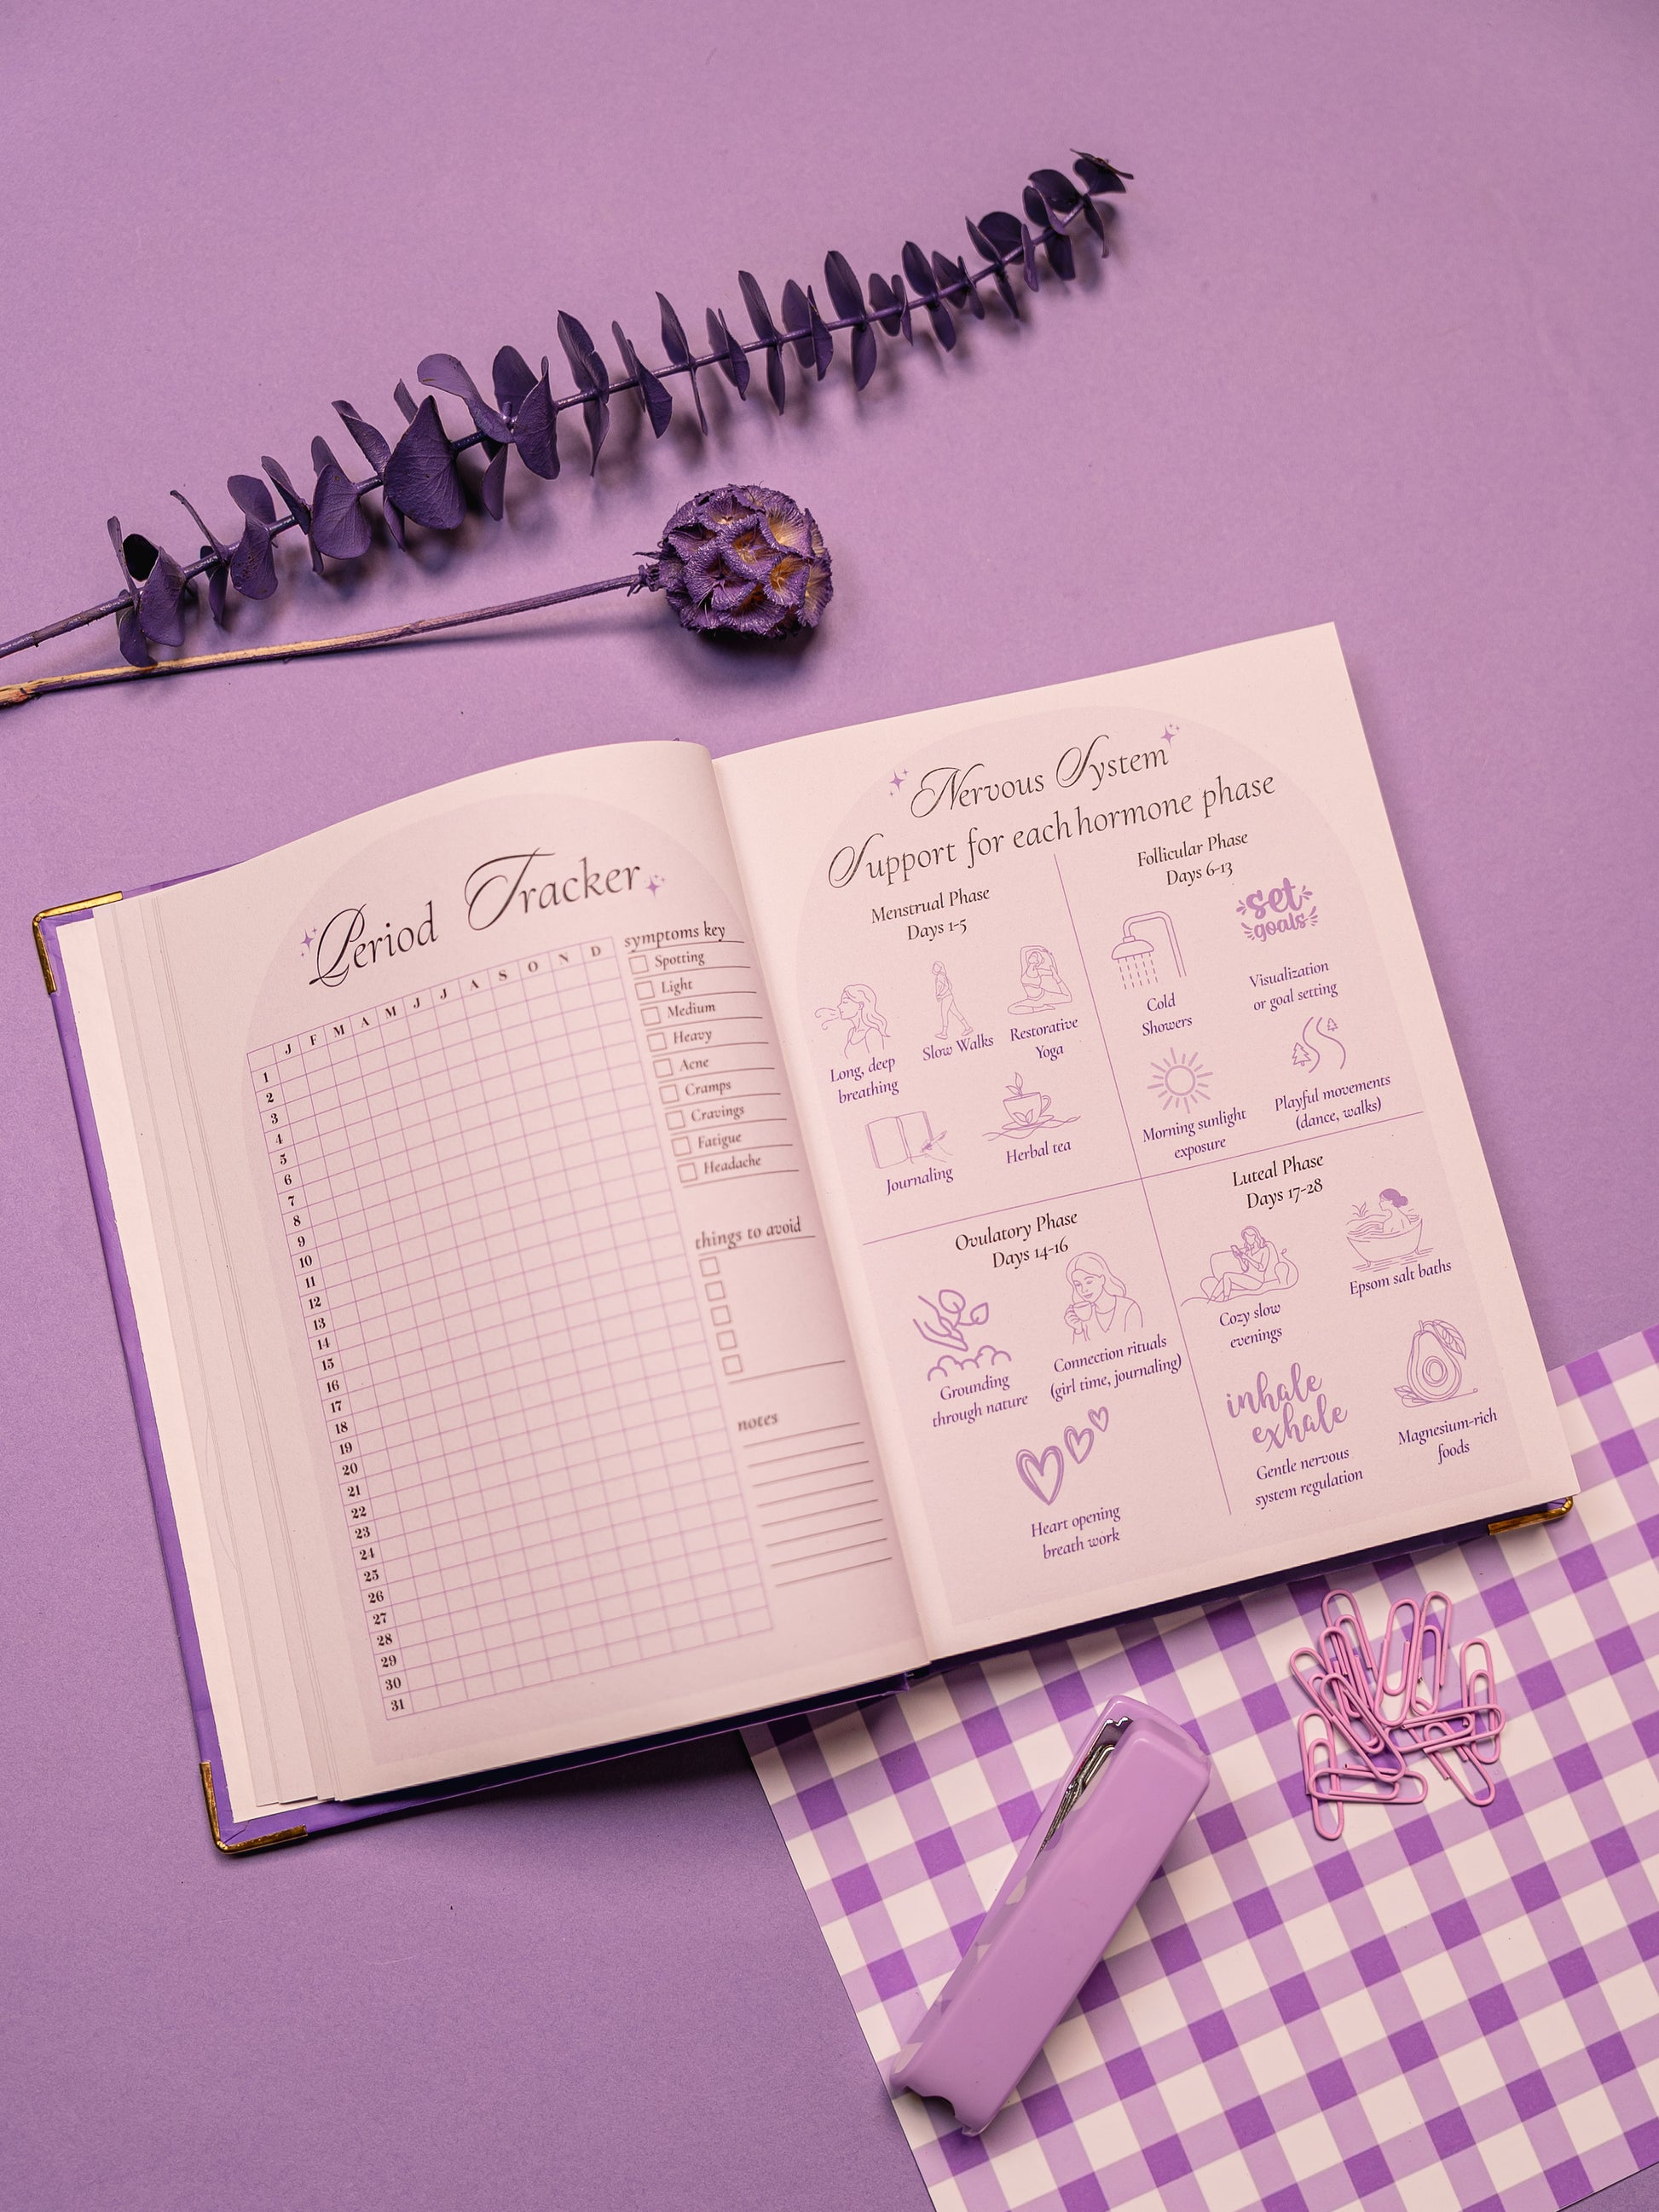 Period Tracker
J F M A M J J A S O N D
1
2
3
4
5
6
7
8
9
10
11
12
13
14
15
16
17
18
19
20
21
22
23
24
25
26
27
28
29
30
31
symptoms key
Spotting
Light
Medium
Heavy
Acne
Cramps
Cravings
Fatigue
Headache
things to avoid
notes
Nervous System
Support for each hormone phase
Menstrual Phase
Days 1-5
Long, deep
breathing
Slow Walks
Restorative
Yoga
Journaling
Herbal tea
Follicular Phase
Days 6-13
Cold
Showers
set
goals
Visualization
or goal setting
Morning sunlight
exposure
Playful movements
(dance, walks)
Ovulatory Phase
Days 14-16
Grounding
through nature
Connection rituals
(girl time, journaling)
Heart opening
breath work
Luteal Phase
Days 17-28
Cozy slow
evenings
Epsom salt baths
inhale
exhale
Gentle nervous
system regulation
Magnesium-rich
foods